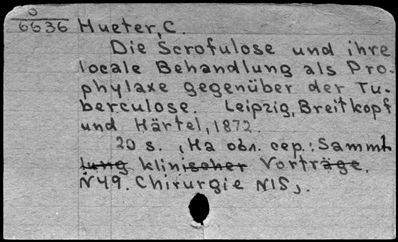 6636 Hueter, C.
Die Scrofulose und ihre
locale Behandlung als Pro-
phylaxe gegenüber der Tu-
berculose. Leipzig, Breitkopf
und Härtel, 1872.
20 s. (На обл. сер.: Sammt
lung klinischer Vorträge.
N49. Chirurgie N15).